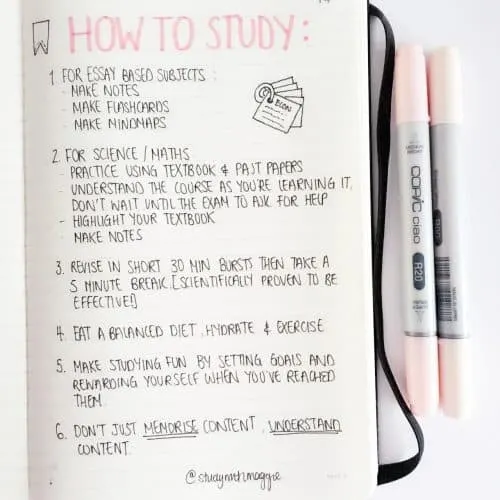 HOW TO STUDY:
1 FOR ESSAY BASED SUBJECTS :
- MAKE NOTES
- MAKE FLASHCARDS
- MAKE MINDMAPS
ECON
2. FOR SCIENCE / MATHS
- PRACTICE USING TEXTBOOK & PAST PAPERS
- UNDERSTAND THE COURSE AS YOU'RE LEARNING IT,
DON'T WAIT UNTIL THE EXAM TO ASK FOR HELP
- HIGHLIGHT YOUR TEXTBOOK
- MAKE NOTES
3. REVISE IN SHORT 30 MIN BURSTS THEN TAKE A
5 MINUTE BREAK. [SCIENTIFICALLY PROVEN TO BE
EFFECTIVE!]
4. EAT A BALANCED DIET, HYDRATE & EXERCISE
5. MAKE STUDYING FUN BY SETTING GOALS AND
REWARDING YOURSELF WHEN YOU'VE REACHED
THEM.
6. DON'T JUST MEMORISE CONTENT, UNDERSTAND
CONTENT.
@studywithmaggie
COPIC ciao
R20